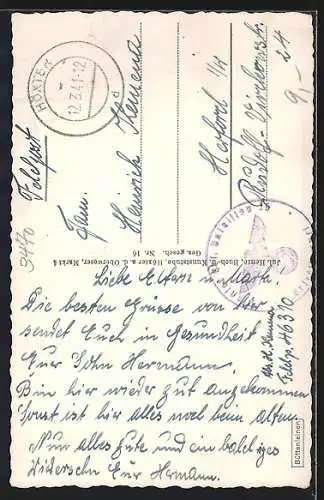 HÖXTER
12.3.41-12
d
Feldpost
Fam.
Heinrich
Herford i/W
9,- 24
3440
Jul. Henze, Buch- u. Kunststube, Höxter a. d. Oberweser, Markt 4
Ges. gesch. Nr. 16
Liebe Eltern u.
Die besten Grüsse von hier
sendet Euch in Gesundheit
Euer Sohn Hermann.
Bin hier wieder gut angekommen
Sonst ist hier alles noch beim alten.
Nun alles gute und ein baldiges
Wiedersehn Eur Hermann.
Feldp. 46310
Büttenleinen